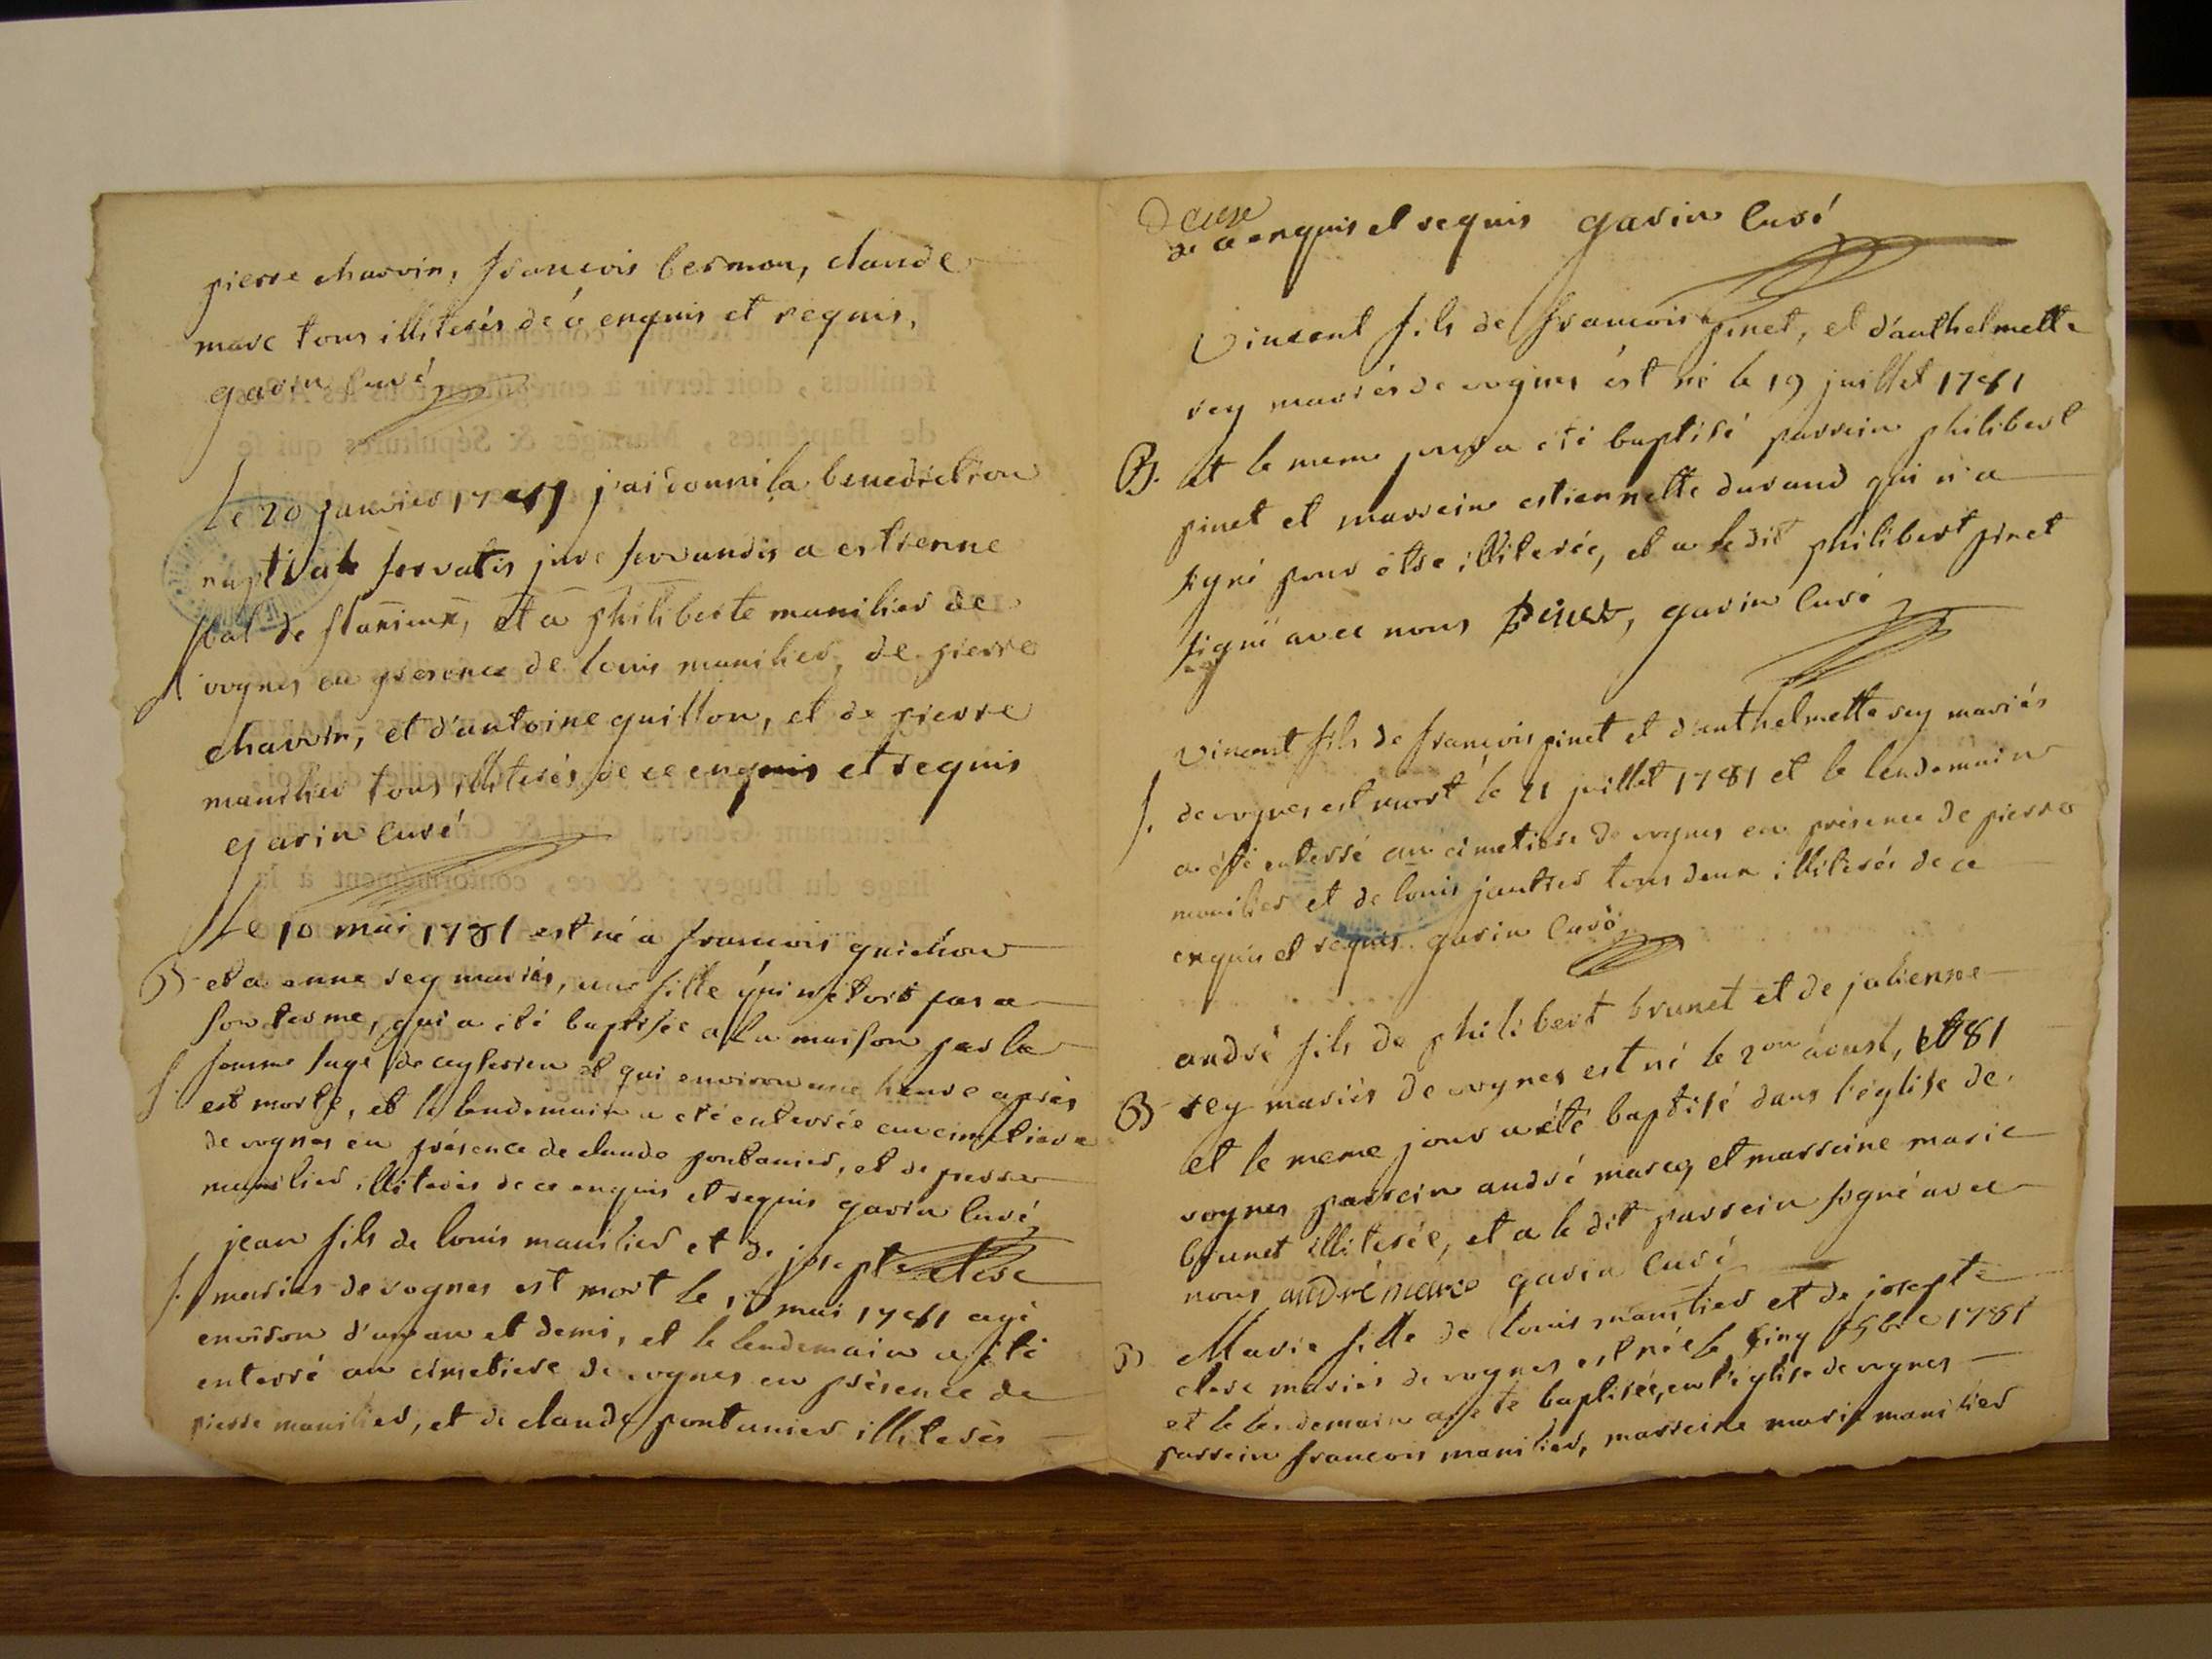 pierre charvin, françois bermon, claude
marc tous illiterés de ce enquis et requis,
gavin curé
Le 20 janvier 1781 j'ai donné la benediction
nuptiale servatis jure servandis a estienne
bal de flaxieux, et a philiberte manilier de
vognes en presence de louis manilier, de pierre
charvin, et d'antoine guillon, et de pierre
manilier tous illiterés de ce enquis et requis
gavin curé
Le 10 mai 1781 est né a françois guichon
B et a anne rey mariés, une fille qui n'etoit pas a
son terme, qui a été baptisée a la maison par la
S. femme sage de ceyzerieu et qui environ une heure après
est morte, et le lendemain a eté enterrée au cimetiere
de vognes en présence de claude pontanier, et de pierre
manilier illiterés de ce enquis et requis gavin curé
jean fils de louis manilier et de josepte clere
S. mariés de vognes est mort le mai 1781 agé
environ d'un an et demi, et le lendemain a été
enterré au cimetiere de vognes en présence de
pierre manilier, et de claude pontanier illiterés
de ce enquis et requis gavin curé
Vincent fils de françois pinet, et d'anthelmette
rey mariés de vognes est né le 19 juillet 1781
B. et le meme jour a été baptisé parrein philibert
pinet et marreine estiennette durand qui n'a
signé pour être illiterée, et a le dit philibert pinet
signé avec nous Pinet, gavin curé
vincent fils de françois pinet et d'anthelmette rey mariés
S. de vognes est mort le 21 juillet 1781 et le lendemain
a été enterré au cimetiere de vognes en présence de pierre
manilier et de louis jantier tous deux illiterés de ce
enquis et requis. gavin curé
andré fils de philibert brunet et de julienne
B rey mariés de vognes est né le 2on aoust, 1781
et le meme jour a été baptisé dans l'église de
vognes parrein andré marcq et marreine marie
brunet illiterée, et a le dit parrein signé avec
nous andré marc gavin curé
B Marie fille de louis manilier et de josepte
clere mariés de vognes est née le cinq 1781
et le lendemain a eté baptisée, en l'église de vognes
parrein françois manilier, marreine marie manilier